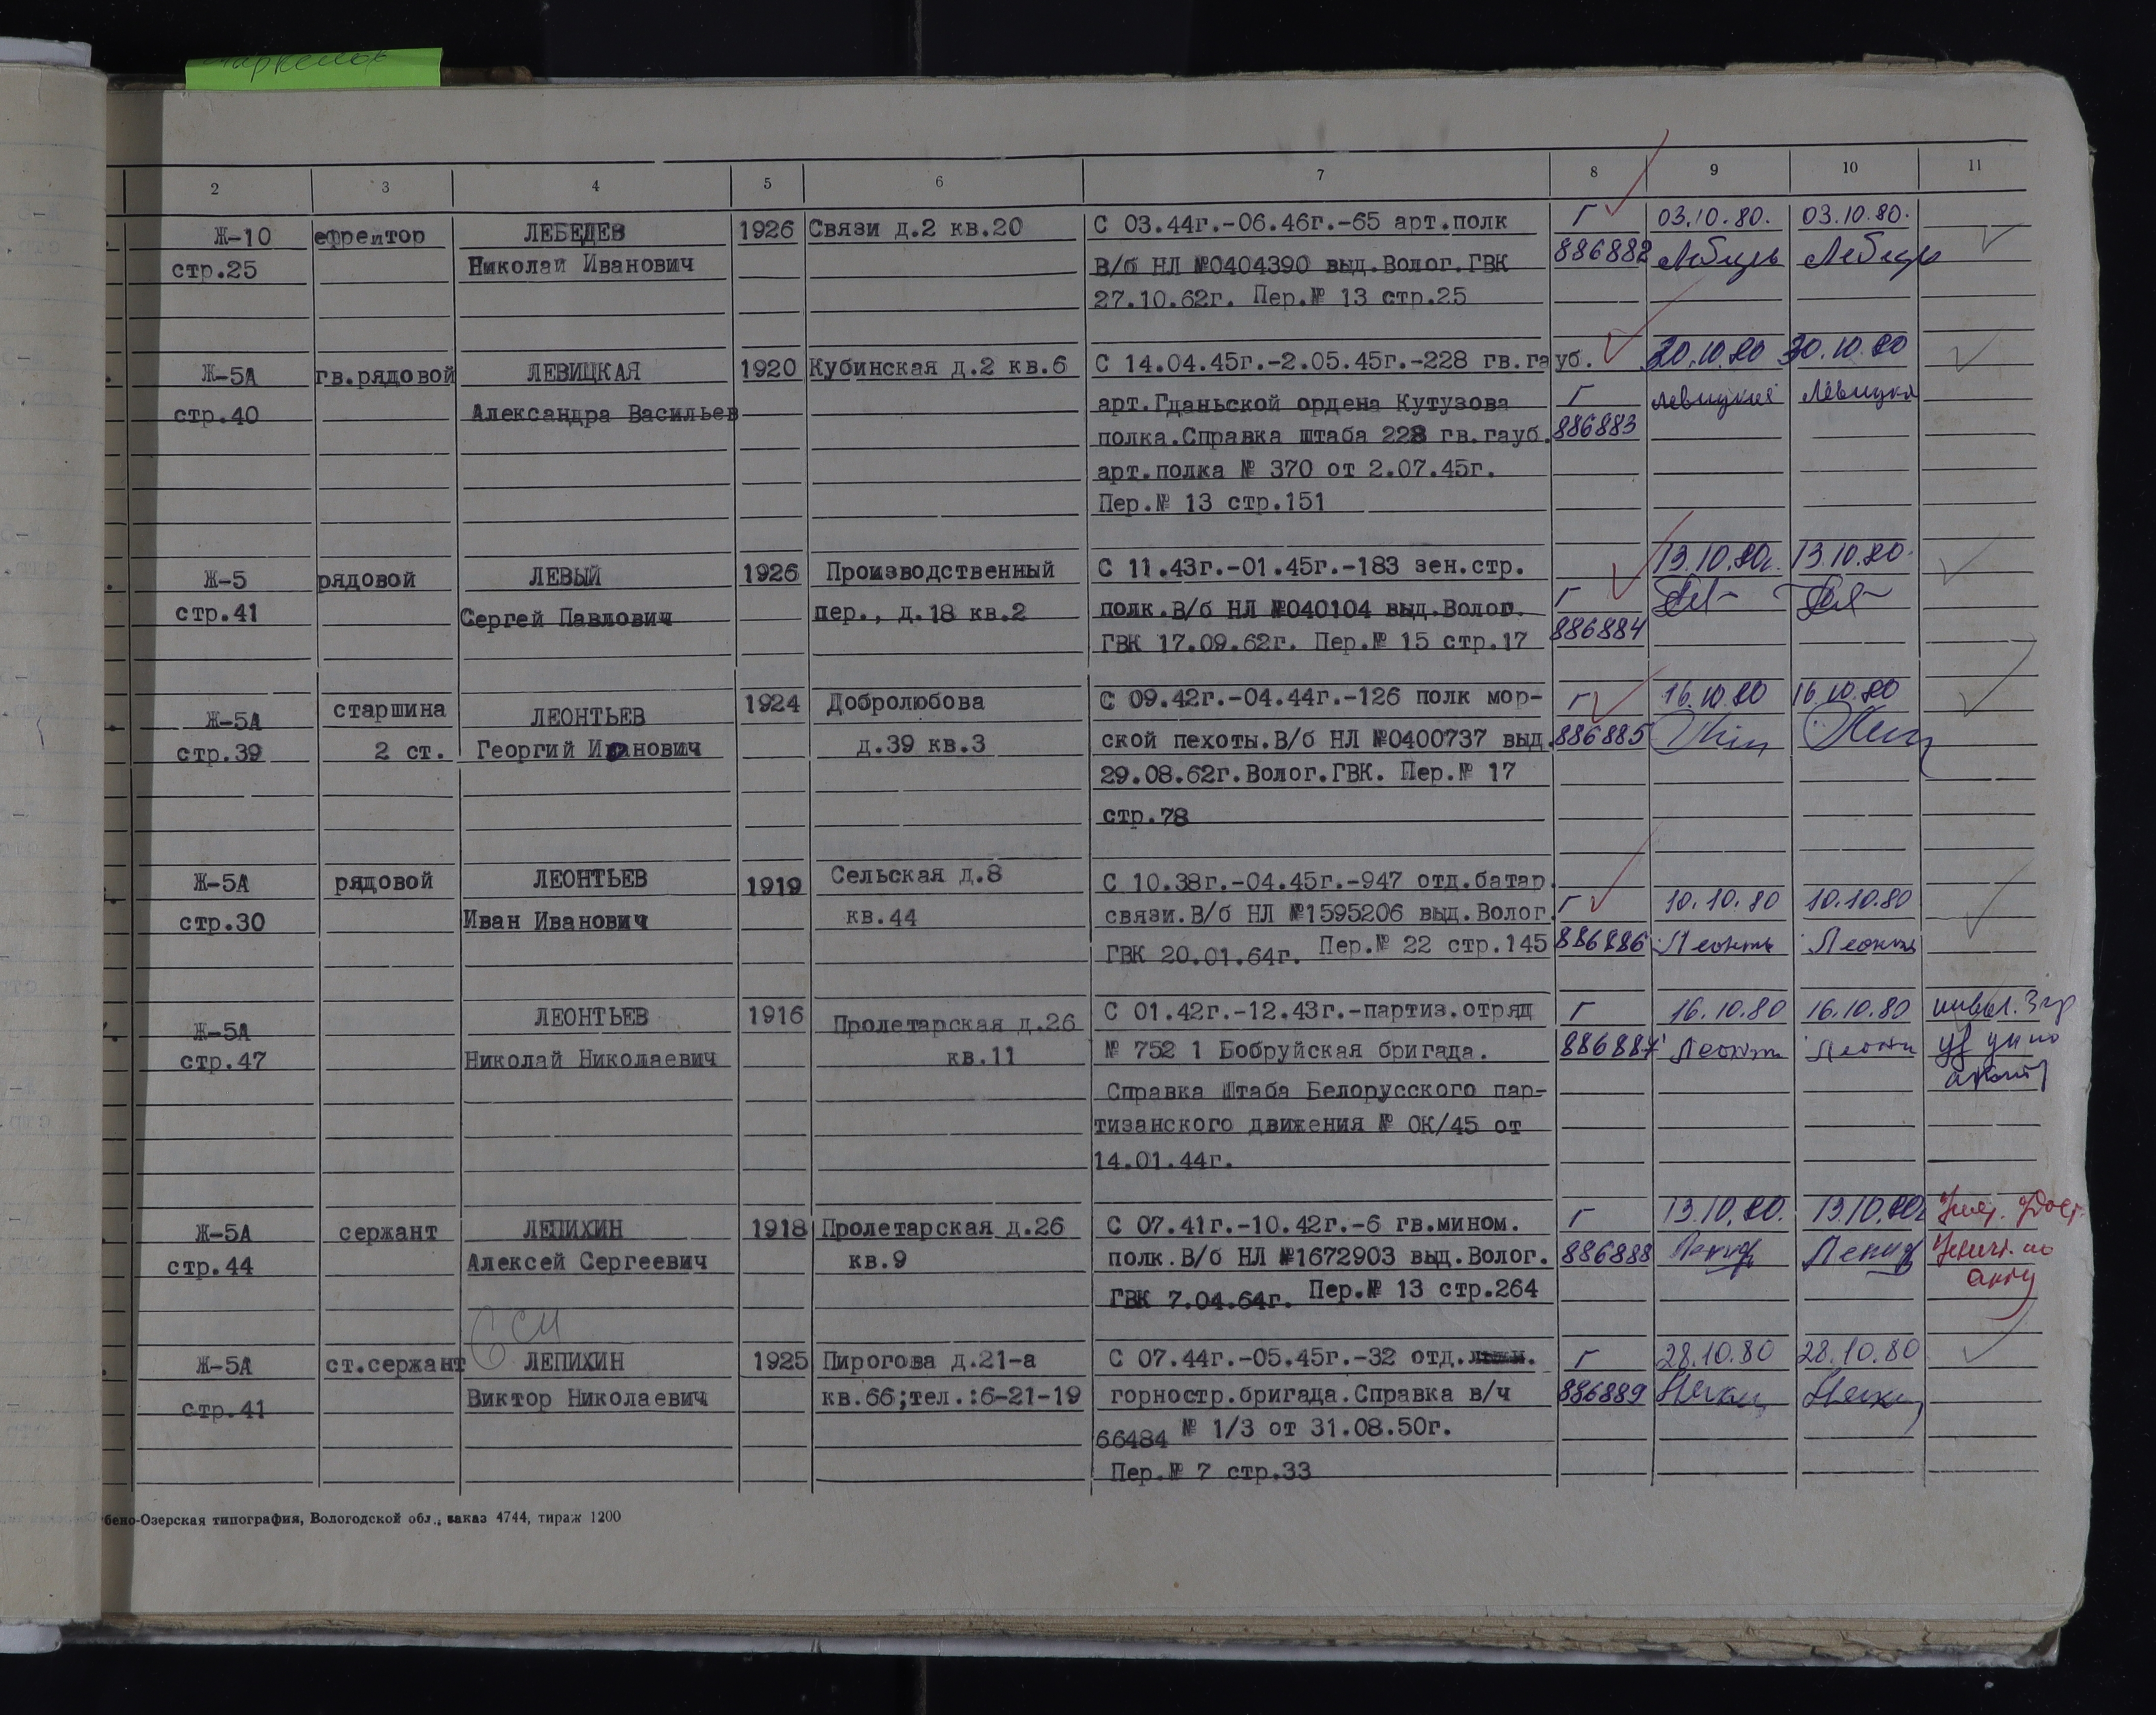 2 3 4 5 6 7 8 9 10 11
Ж-10 ефрейтор ЛЕБЕДЕВ 1926 Связи д.2 кв.20 С 03.44г.-06.46г.-65 арт.полк Г 03.10.80. 03.10.80.
стр.25 Николай Иванович В/б НЛ №0404390 выд.Волог.ГВК 886882
27.10.62г. Пер.№ 13 стр.25
Ж-5А гв.рядовой ЛЕВИЦКАЯ 1920 Кубинская д.2 кв.6 С 14.04.45г.-2.05.45г.-228 гв.гауб. 30.10.80 30.10.80
стр.40 Александра Васильев арт.Гданьской ордена Кутузова Г
полка.Справка штаба 228 гв.гауб. 886883
арт.полка № 370 от 2.07.45г.
Пер.№ 13 стр.151
Ж-5 рядовой ЛЕВЫЙ 1926 Производственный С 11.43г.-01.45г.-183 зен.стр. 13.10.80г. 13.10.80.
стр.41 Сергей Павлович пер., д.18 кв.2 полк.В/б НЛ №040104 выд.Волог. Г
ГВК 17.09.62г. Пер.№ 15 стр.17 886884
Ж-5А старшина ЛЕОНТЬЕВ 1924 Добролюбова С 09.42г.-04.44г.-126 полк мор- Г 16.10.80 16.10.80
стр.39 2 ст. Георгий Иванович д.39 кв.3 ской пехоты.В/б НЛ №0400737 выд. 886885
29.08.62г.Волог.ГВК. Пер.№ 17
стр.78
Ж-5А рядовой ЛЕОНТЬЕВ 1919 Сельская д.8 С 10.38г.-04.45г.-947 отд.батар.
стр.30 Иван Иванович кв.44 связи.В/б НЛ №1595206 выд.Волог. Г 10.10.80 10.10.80
ГВК 20.01.64г. Пер.№ 22 стр.145 886886
Ж-5А ЛЕОНТЬЕВ 1916 Пролетарская д.26 С 01.42г.-12.43г.-партиз.отряд Г 16.10.80 16.10.80
стр.47 Николай Николаевич кв.11 № 752 1 Бобруйская бригада. 886887
Справка Штаба Белорусского пар-
тизанского движения № ОК/45 от
14.01.44г.
Ж-5А сержант ЛЕПИХИН 1918 Пролетарская д.26 С 07.41г.-10.42г.-6 гв.мином. Г 13.10.80. 13.10.80г
стр.44 Алексей Сергеевич кв.9 полк.В/б НЛ №1672903 выд.Волог. 886888
ГВК 7.04.64г. Пер.№ 13 стр.264 акту
Ж-5А ст.сержант ЛЕПИХИН 1925 Пирогова д.21-а С 07.44г.-05.45г.-32 отд. Г 28.10.80 28.10.80
стр.41 Виктор Николаевич кв.66;тел.:6-21-19 горностр.бригада.Справка в/ч 886889
66484 № 1/3 от 31.08.50г.
Пер.№ 7 стр.33
бено-Озерская типография, Вологодской обл., заказ 4744, тираж 1200